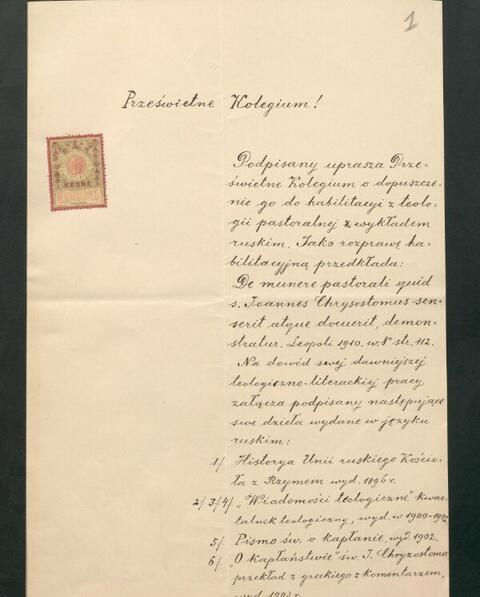 1
Prześwietne Kolegium!
KRONE
Podpisany uprasza Prze-
świetne Kolegium o dopuszcze-
nie go do habilitacyi z teolo-
gii pastoralnej z wykładem
ruskim. Jako rozprawę ha-
bilitacyjną przedkłada:
De munere pastorali quid
s. Joannes Chrysostomus sen-
serit atque docuerit, demon-
stratur. Leopoli 1910. w 8° str. 112.
Na dowód swej dawniejszej
teologiczno-literackiej pracy
załącza podpisany następujące
swe dzieła wydane w języku
ruskim:
1/ Historya Unii ruskiego Kościo-
ła z Rzymem wyd. 1896 r.
2/ 3/ 4/ „Wiadomości teologiczne" kwar-
talnik teologiczny, wyd. w 1900-1902
5/ Pismo św. o kapłanie, wyd. 1902.
6/ „O kapłaństwie" św. J. Chryzostoma
przekład z greckiego z komentarzem,
wyd. 1903 r.